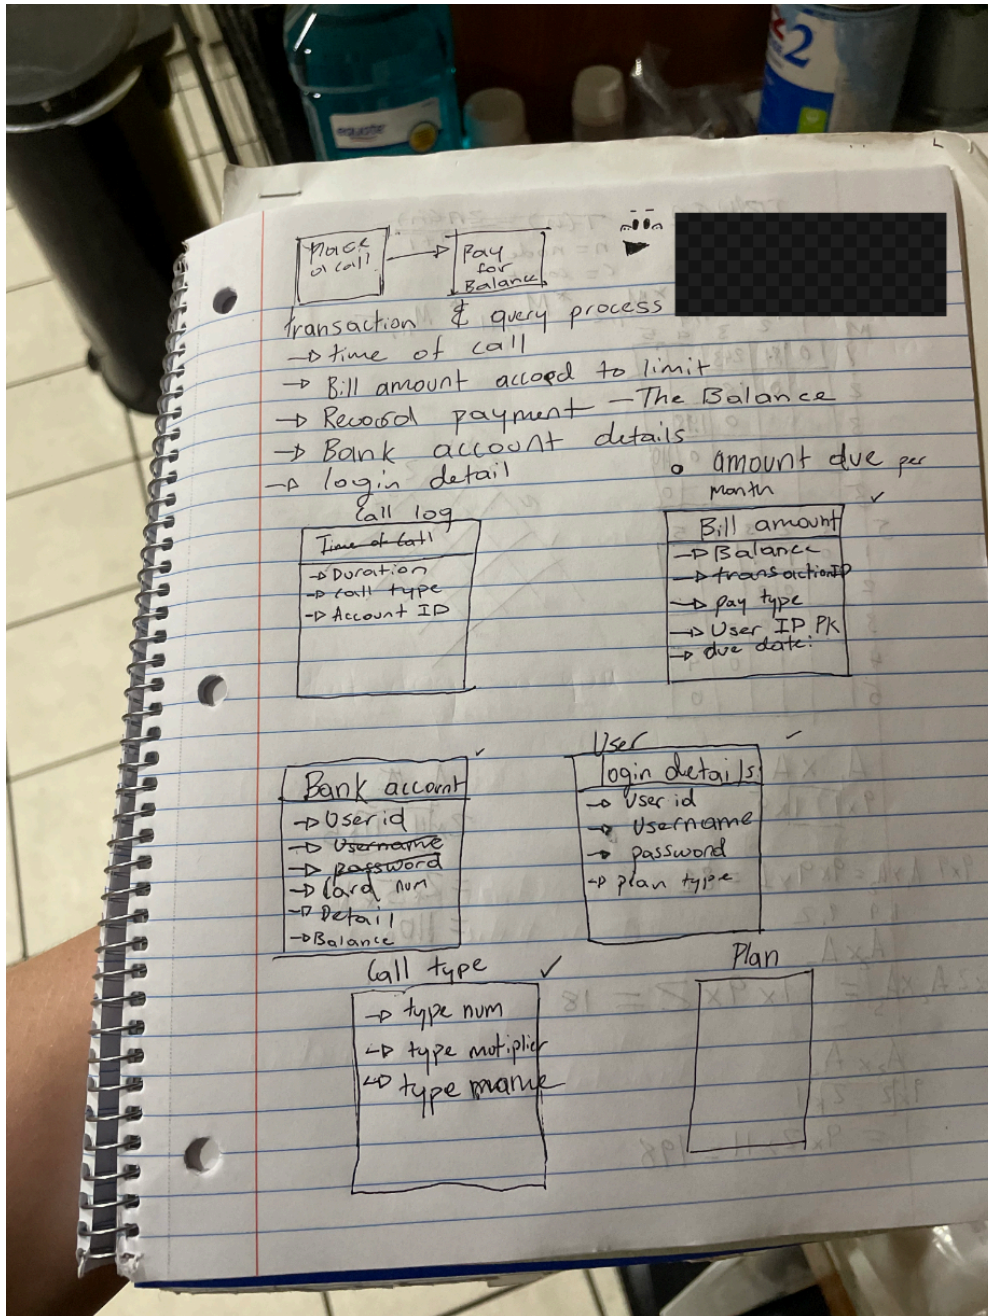 Place
a call
Pay
for
Balance
transaction & query process
→ time of call
→ Bill amount accoed to limit
→ Record payment — The Balance
→ Bank account details
→ login detail
o amount due per
month
Call log
Time of Call
→ Duration
→ call type
→ Account ID
✓
Bill amount
→ Balance
→ transactionID
→ pay type
→ User ID PK
→ due date.
✓
Bank account
→ User id
→ Username
→ password
→ Card num
→ Detail
→ Balance
User ✓
login details
→ User id
→ Username
→ password
→ plan type
Call type ✓
→ type num
→ type motiplier
→ type name
Plan
equate
2